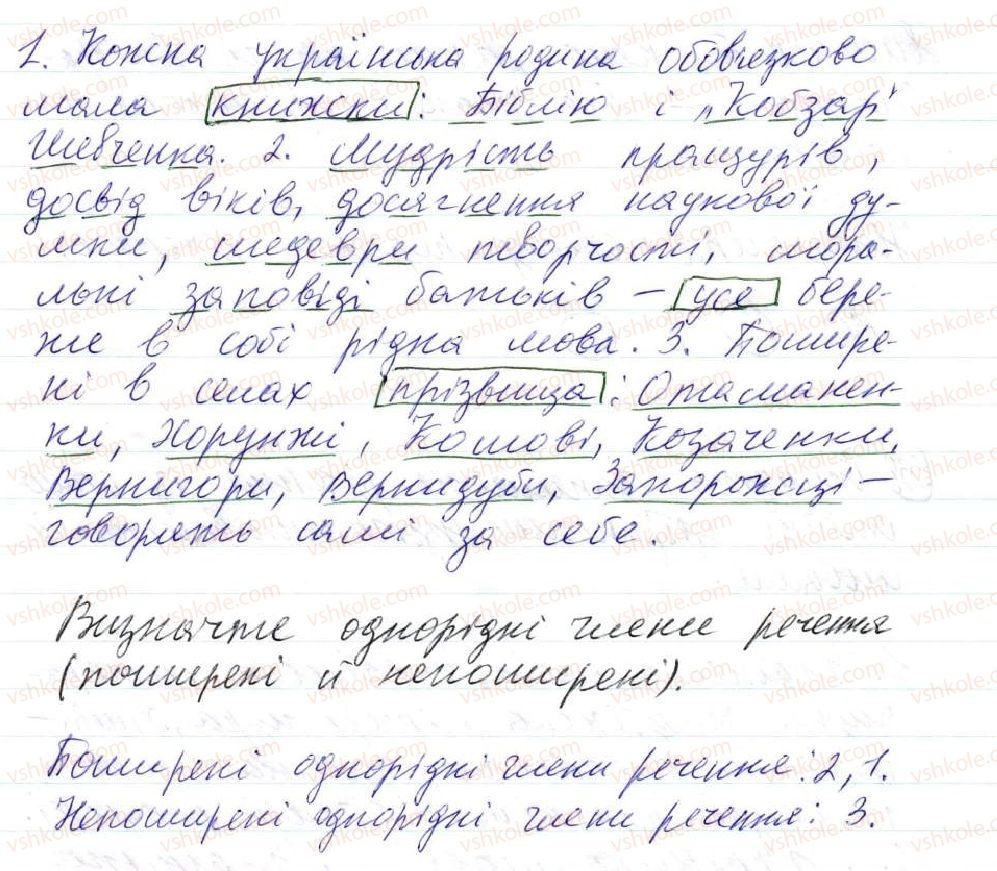 1. Кожна українська родина обов'язково
мала книжки: Біблію і "Кобзар"
Шевченка. 2. Мудрість пращурів,
досвід віків, досягнення наукової ду-
мки, шедеври творчості, мора-
льні заповіді батьків – усе бере-
же в собі рідна мова. 3. Пошире-
ні в селах прізвища: Отаманен-
ки, Хорунжі, Кошові, Козаченки,
Вернигори, Вернидуби, Запорожці –
говорять самі за себе.
Визначте однорідні члени речення
(поширені й непоширені).
Поширені однорідні члени речення: 2, 1.
Непоширені однорідні члени речення: 3.
vshkole.com